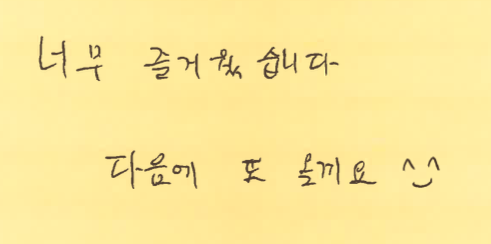 너무 즐거웠습니다
다음에 또 올께요 ^_^